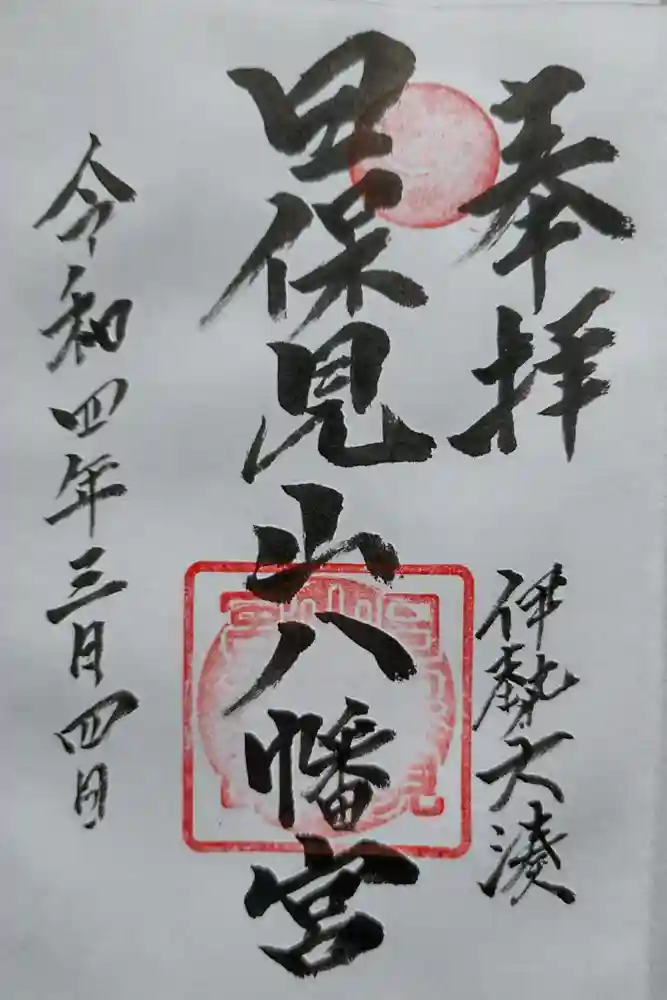 奉拝
伊勢大湊
日保見山八幡宮
令和四年三月四日